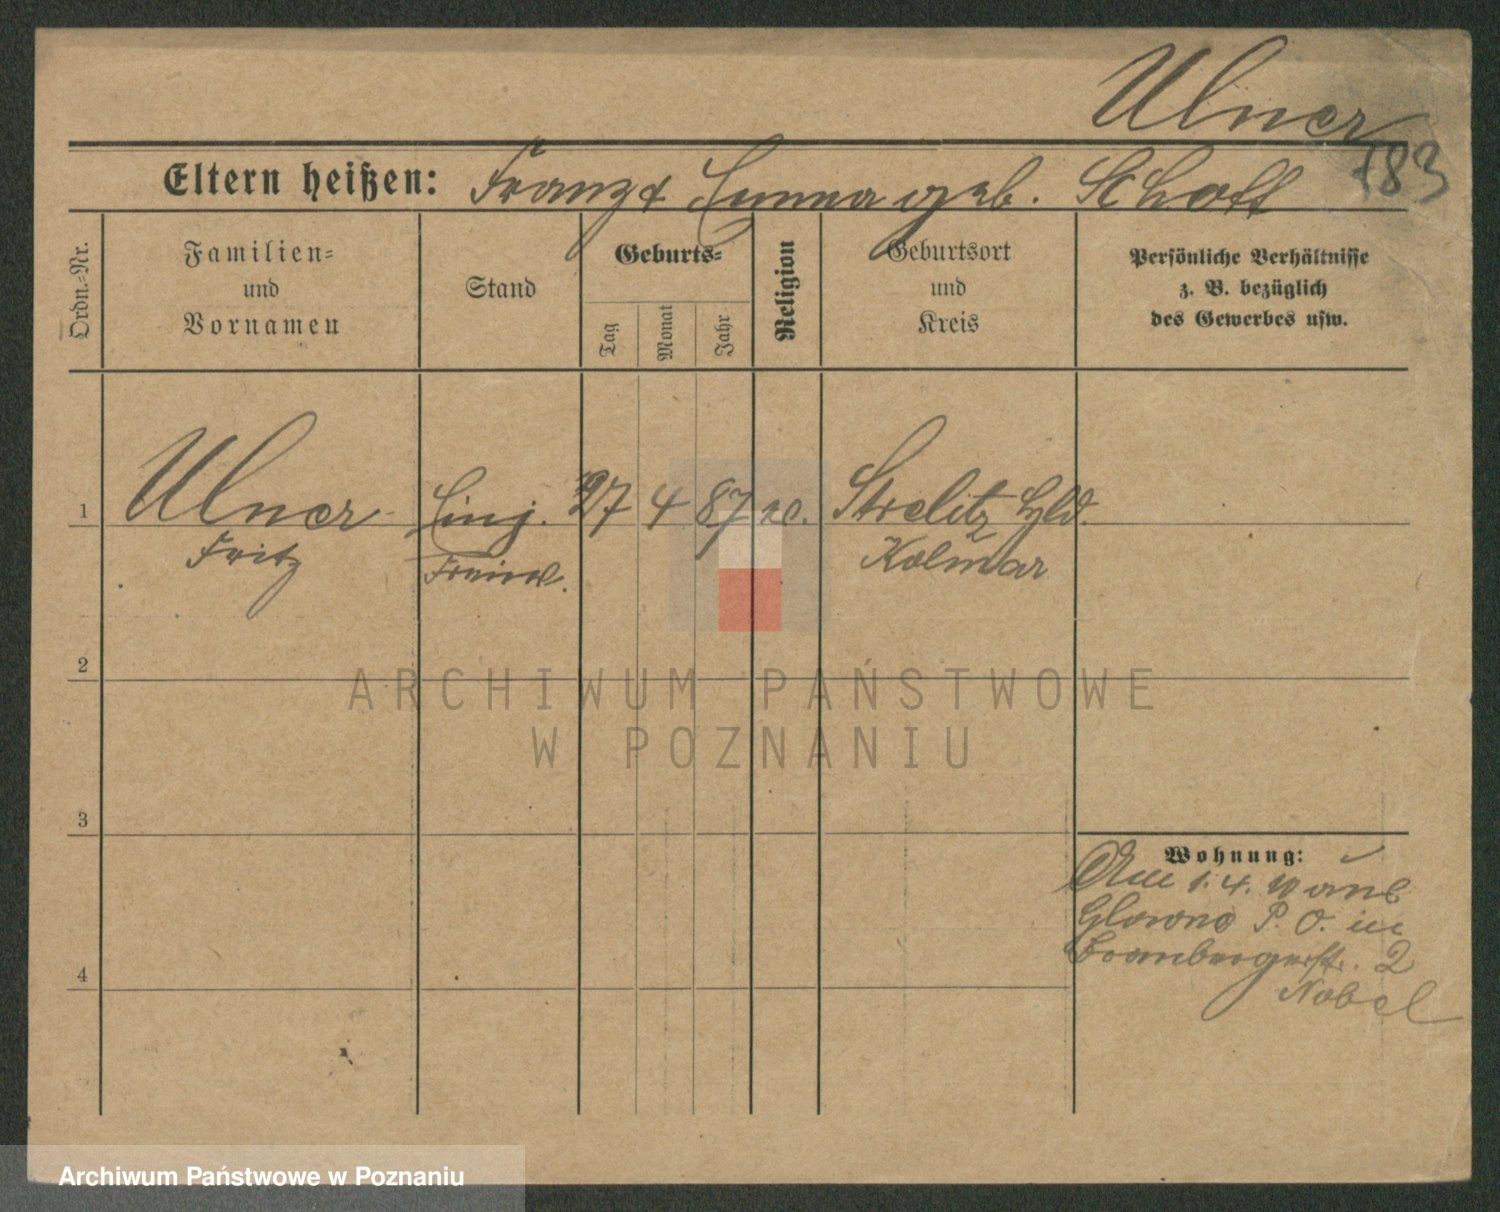 Ulner
183
Eltern heißen: Franz & Emma geb. Schott
Ordn.=Nr.
Familien=
und
Vornamen
Stand
Geburts=
Tag
Monat
Jahr
Religion
Geburtsort
und
Kreis
Persönliche Verhältnisse
z. B. bezüglich
des Gewerbes usw.
1 Ulner Einj. 27 4 87 Strelitz Hld.
Fritz Freiw. Kolmar
2
3
4
Wohnung:
1. 4. 10
Glowno P. O. in
Brombergerstr. 2
Nobel
ARCHIWUM PAŃSTWOWE
W POZNANIU
Archiwum Państwowe w Poznaniu